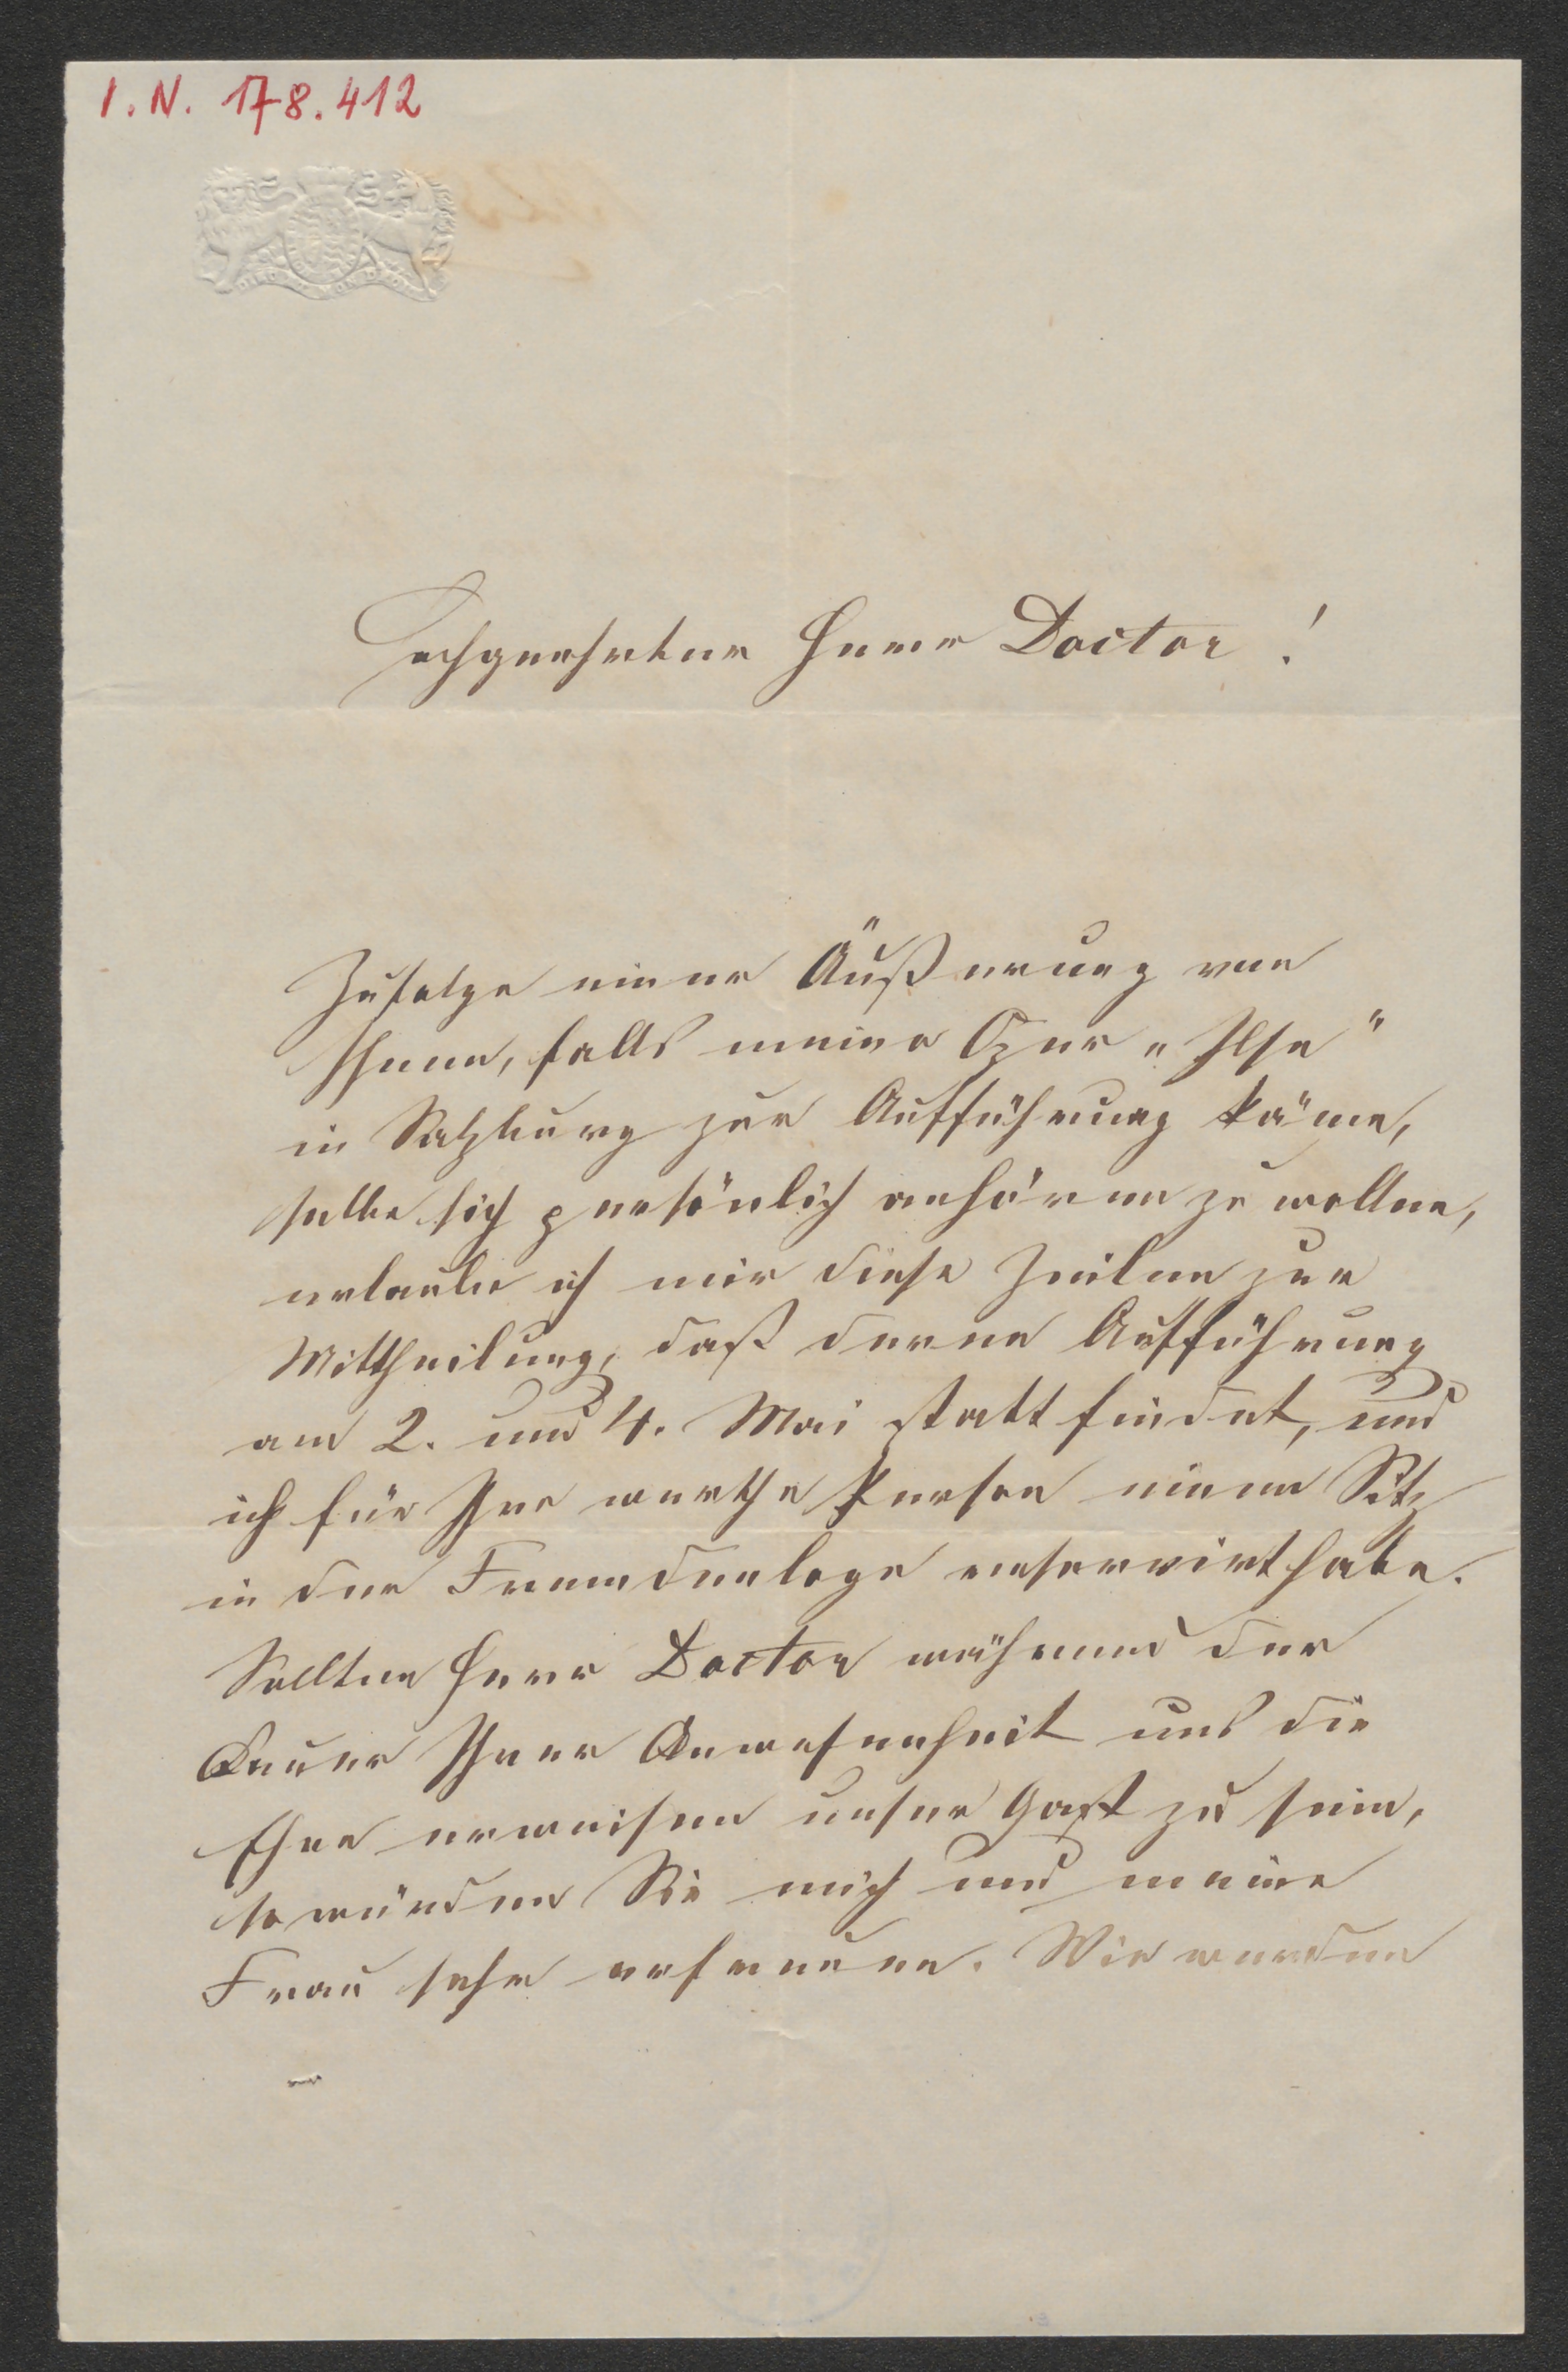 I.N. 178.412
Hochgeehrter Herr Doctor!
Zufolge einer Äußerung von
Ihnen, falls meine Oper „Ilse"
in Salzburg zur Aufführung käme,
selbe sich persönlich anhören zu wollen,
erlaube ich mir diese Zeilen zur
Mittheilung, daß deren Aufführung
am 2. und 4. Mai stattfindet, und
ich für Ihre werthe Person einen Sitz
in der Fremdenloge reservirt habe.
Sollten Herr Doctor während der
Dauer Ihrer Anwesenheit uns die
Ehre erweisen unser Gast zu sein,
so würden Sie mich und meine
Frau sehr erfreuen. Wir werden